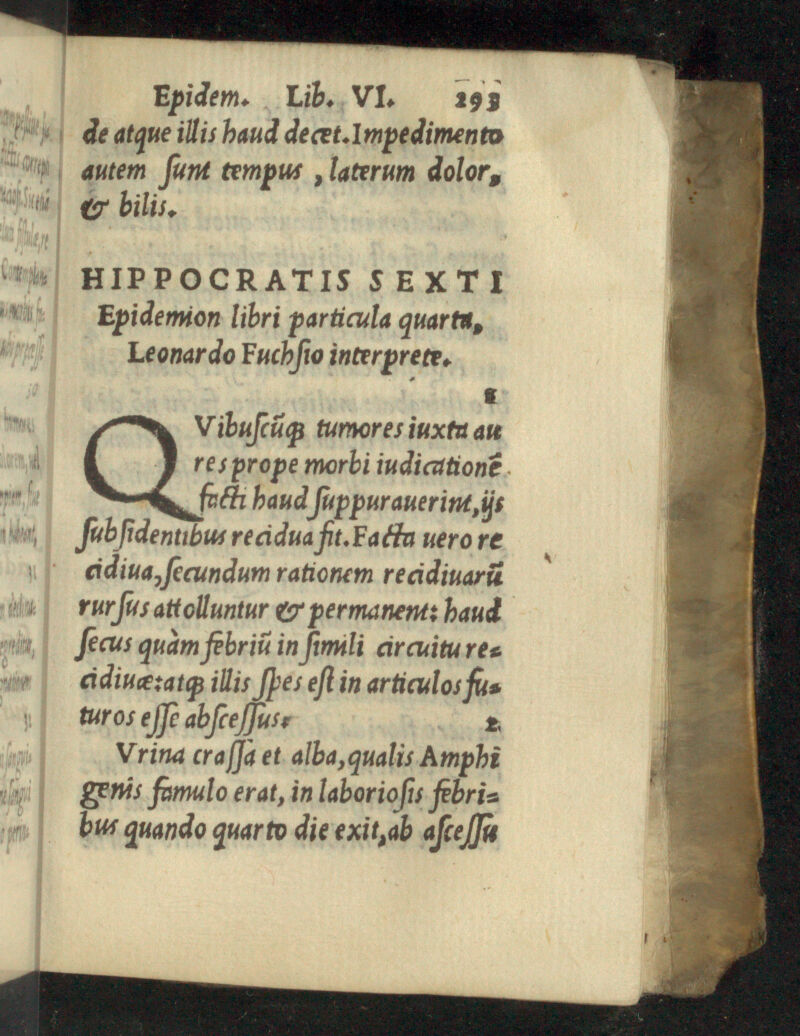 Epidem. Lib. VI. 293
de atque illis haud decet. Impedimento
autem ſunt tempus, laterum dolor,
& bilis.
HIPPOCRATIS SEXTI
Epidemion libri particula quarta,
Leonardo Fuchſio interprete.
1
QVibuſcũqꝫ tumores iuxta au
res prope morbi iudicationẽ
facti haud ſuppurauerint, ijs
ſubſidentibus recidua fit. Facta uero re
cidiua, ſecundum rationem recidiuarũ
rurſus attolluntur & permanent: haud
ſecus quàm febriũ in ſimili circuitu re=
cidiuæ: atqꝫ illis ſpes eſt in articulos fu=
turos eſſe abſceſſus. 2
Vrina craſſa et alba, qualis Amphi
genis famulo erat, in laborioſis febri=
bus quando quarto die exit, ab aſceſſu